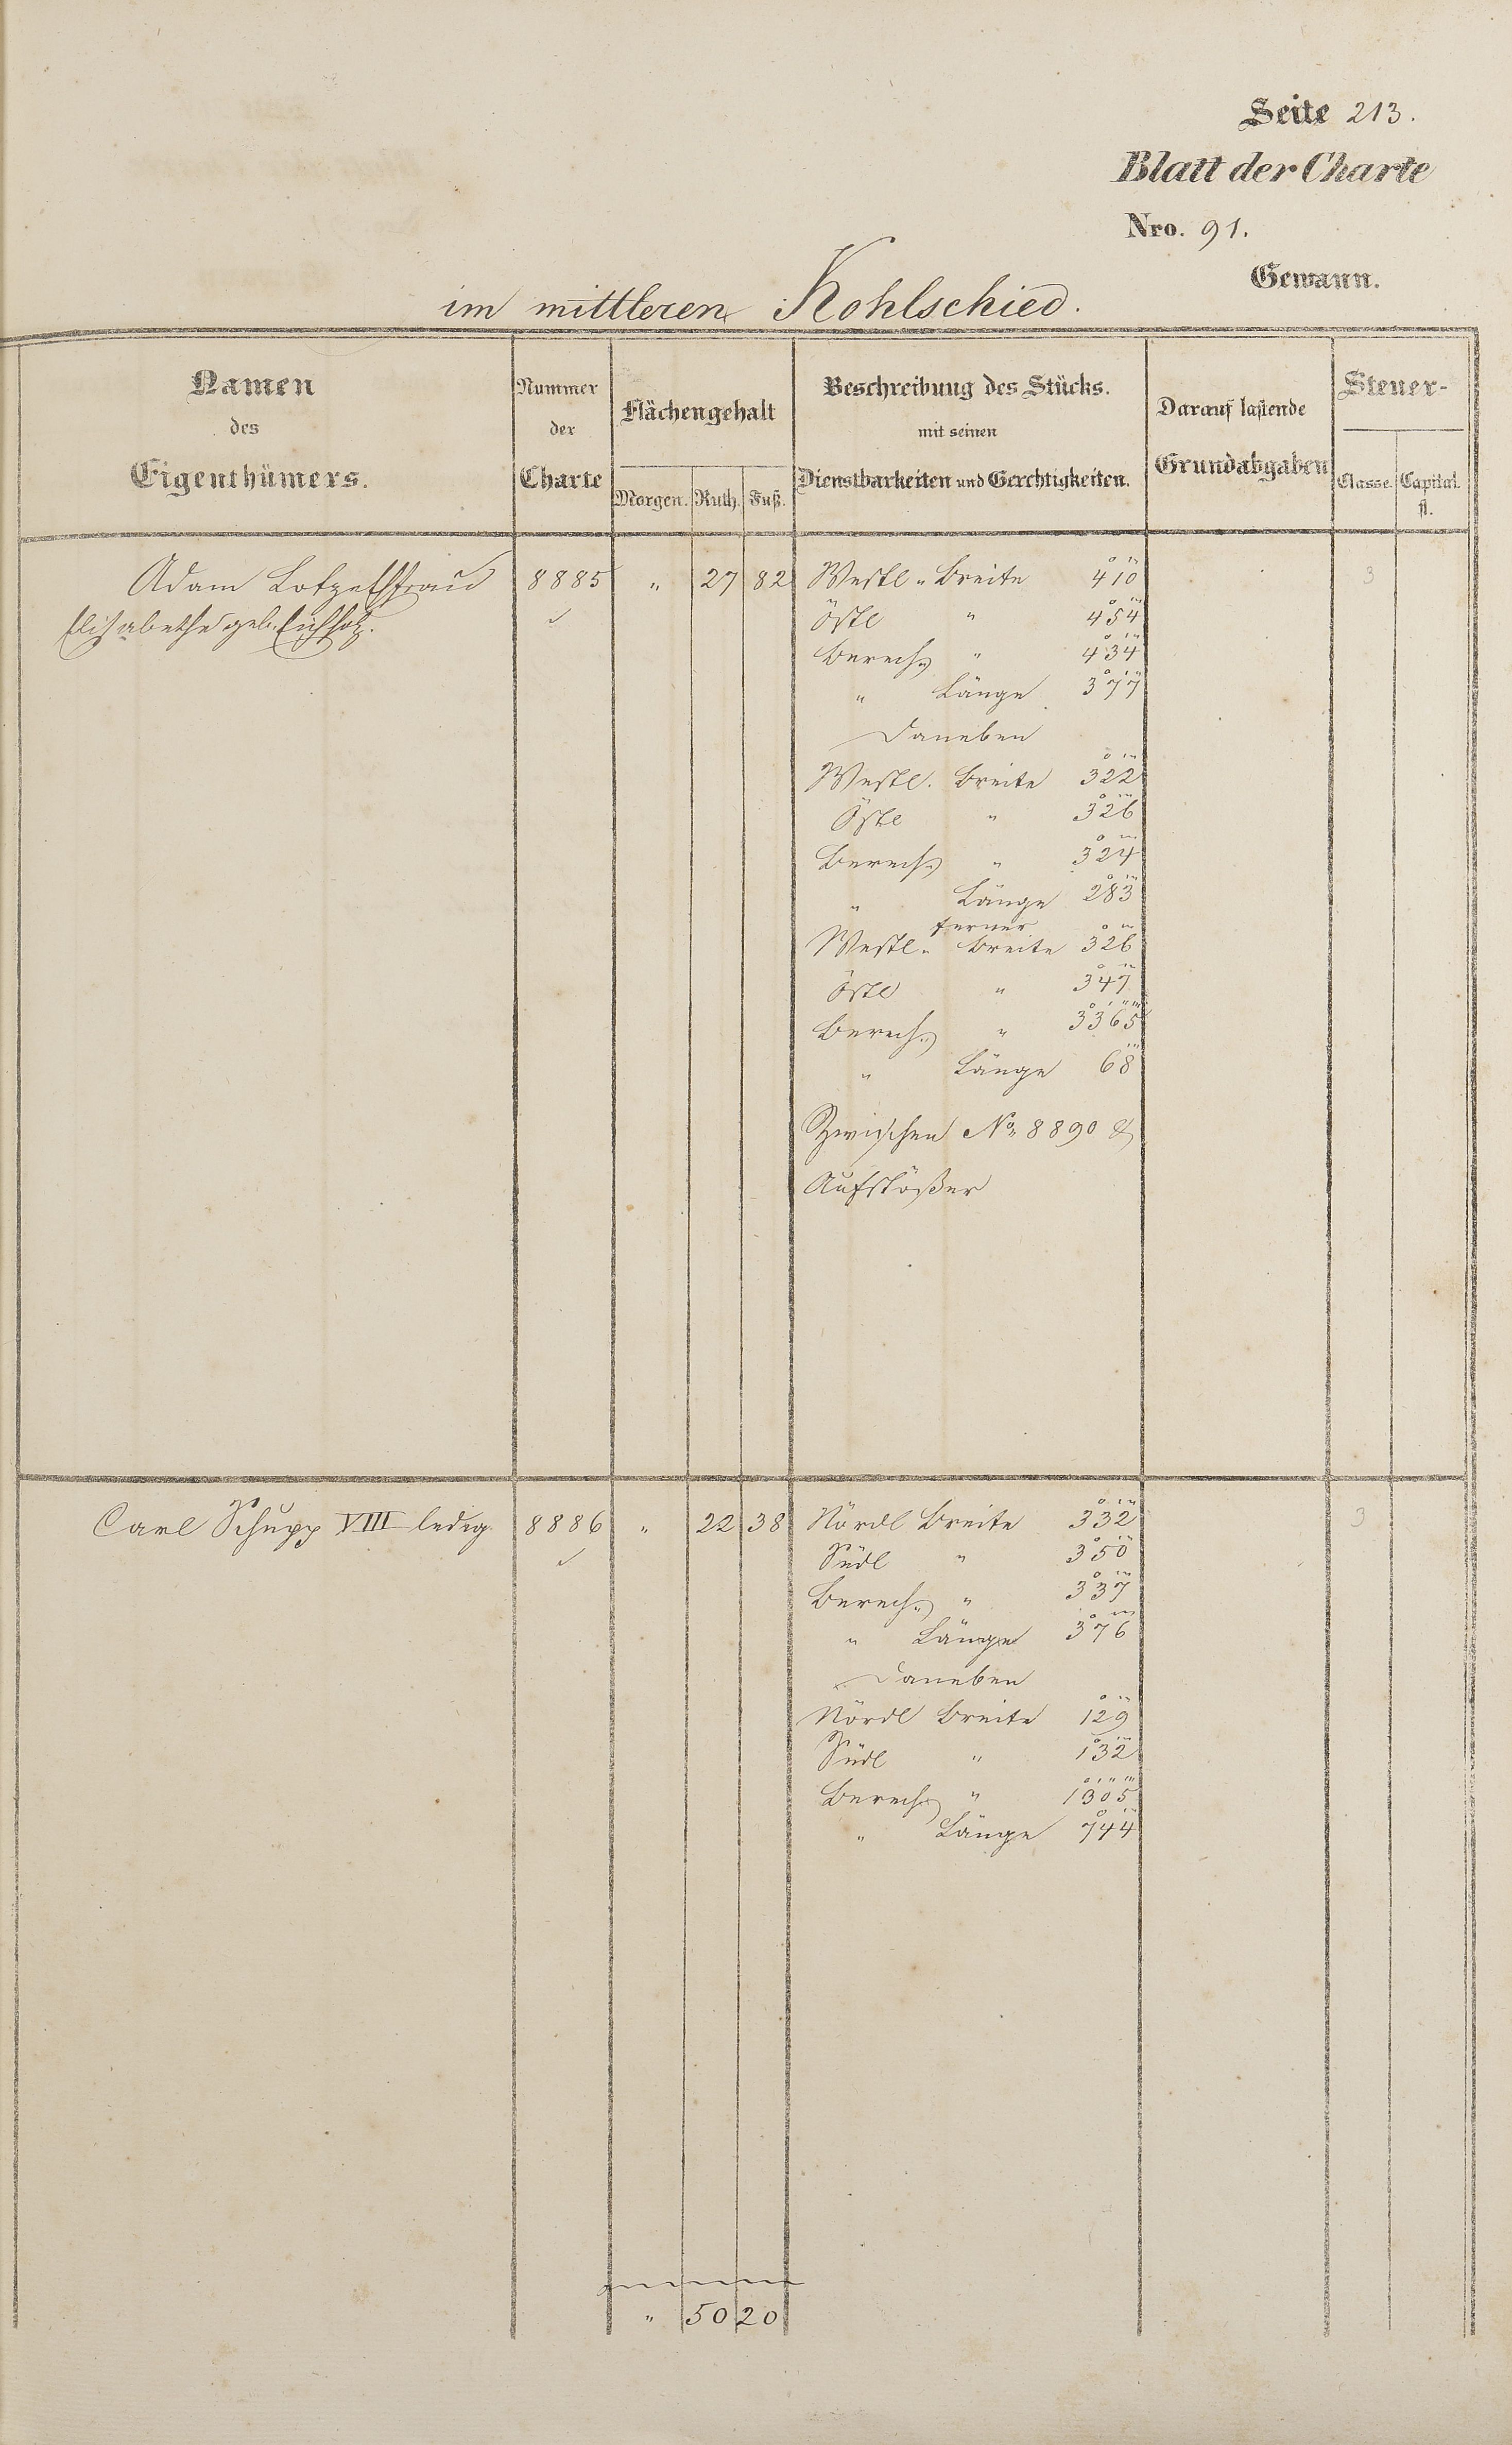 Seite 213.
Blatt der Charte
Nro. 91.
Gewann.
im mittleren Kohlschied.
Namen des Eigenthümers.
Nummer der Charte
Flächengehalt
Morgen. Ruth. Fuß.
Beschreibung des Stücks.
mit seinen
Dienstbarkeiten und Gerechtigkeiten.
Darauf lastende
Grundabgaben
Steuer-
Classe. Capital.
fl.
Adam 8885 " 27 82 Westl. Breite 4° 1' 0" 3
Elisabethe geb. Eichholz. Östl " 4° 5' 4"
Berech. " 4° 3' 4"
" Länge 3° 7' 7"
Daneben
Westl. Breite 3° 2' 2"
Östl " 3° 2' 6"
Berech. " 3° 2' 4"
" Länge 2° 8' 3"
ferner
Westl. Breite 3° 2' 6"
Östl " 3° 4' 7"
Berech. " 3° 3' 6" 5'''
" Länge 6' 8"
Zwischen No. 8890 &
Aufstößer
Carl Schupp VIII ledig 8886 " 22 38 Nördl Breite 3° 3' 2" 3
Südl " 3° 5' 0"
Berech. " 3° 3' 7"
" Länge 3° 7' 6"
Daneben
Nördl Breite 1° 2' 9"
Südl " 1° 3' 2"
Berech. " 1° 3' 0" 5'''
" Länge 7° 4' 4"
" 50 20